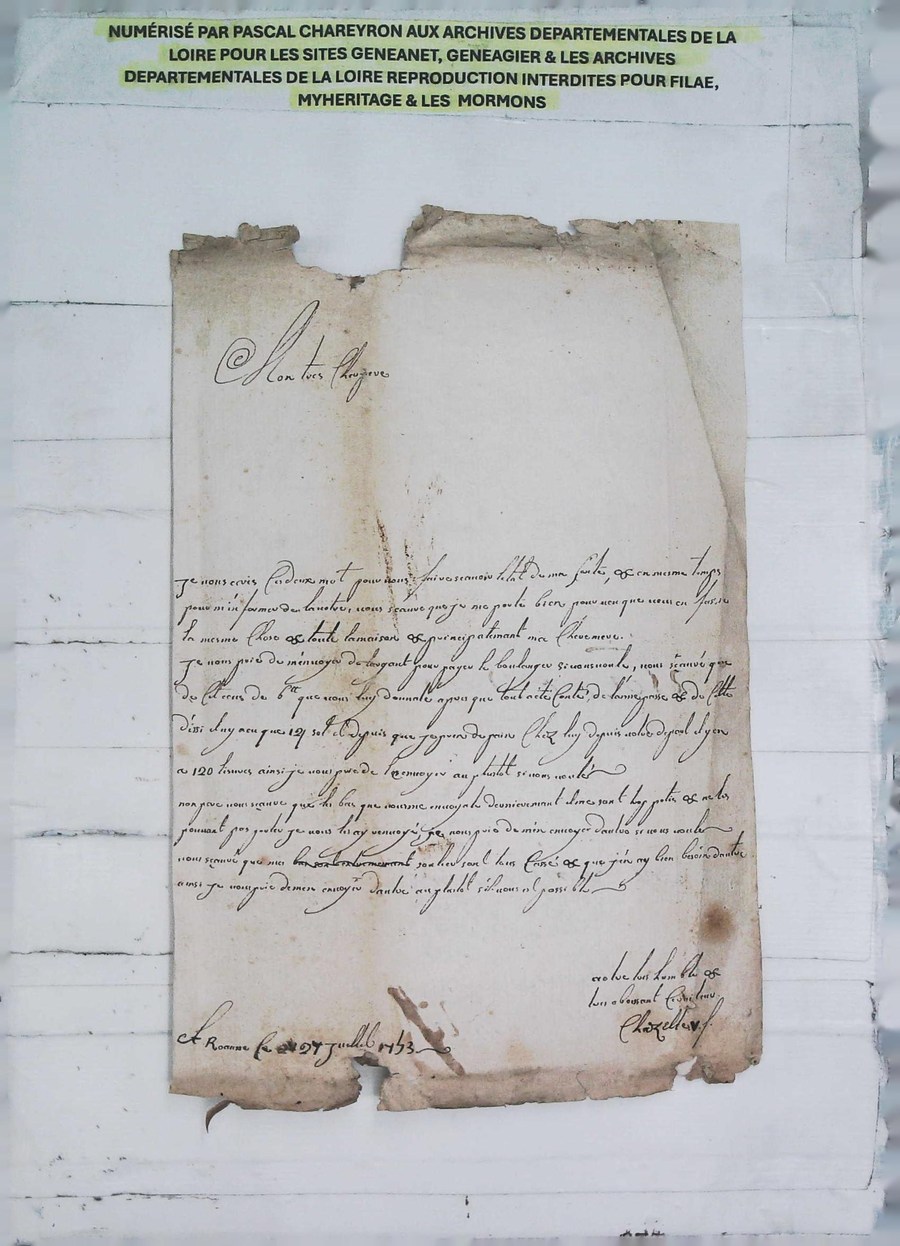 NUMÉRISÉ PAR PASCAL CHAREYRON AUX ARCHIVES DEPARTEMENTALES DE LA
LOIRE POUR LES SITES GENEANET, GENEAGIER & LES ARCHIVES
DEPARTEMENTALES DE LA LOIRE REPRODUCTION INTERDITES POUR FILAE,
MYHERITAGE & LES MORMONS
Mon tres Cher pere
Je vous ecris Ces deux mot pour vous faire scavoir letat de ma santé, & en mesme temps
pour m'informer de la votre, vous scauré que je me porte bien pourveu que vous en fussié
la mesme Chose & toute la maison & principalemant ma Chere mere.
Je vous prie de m'envoyer de largant pour payer le boulanger si vous voulé, vous scauré que
de Cet ecus de 6 que vous luy donnate apres que tout aeté Conté, de l'année passé & de Cette
il ny a eu que 121 sol & depuis que je prend de pain Chez luy depuis votre depart il y en
a 120 livres ainsi je vous prie de l'envoyer au plutot si vous voulé
mon pere vous scauré que les bas que vous me envoyate dernierement me sont trop petis & ne les
pouvant pas porter je vous les ay renvoyé, je vous prie de m'en envoyer dautre si vous voulé
vous scauré que mes soulier sont tous Cassé & que j'en ay bien besoin dautre
ainsi je vous prie de m'en envoyer dautre au plutot s'il vous est possible
votre tres humble &
tres obeissant Serviteur
Chazelle
A Roanne Ce 27 Juillet 1753